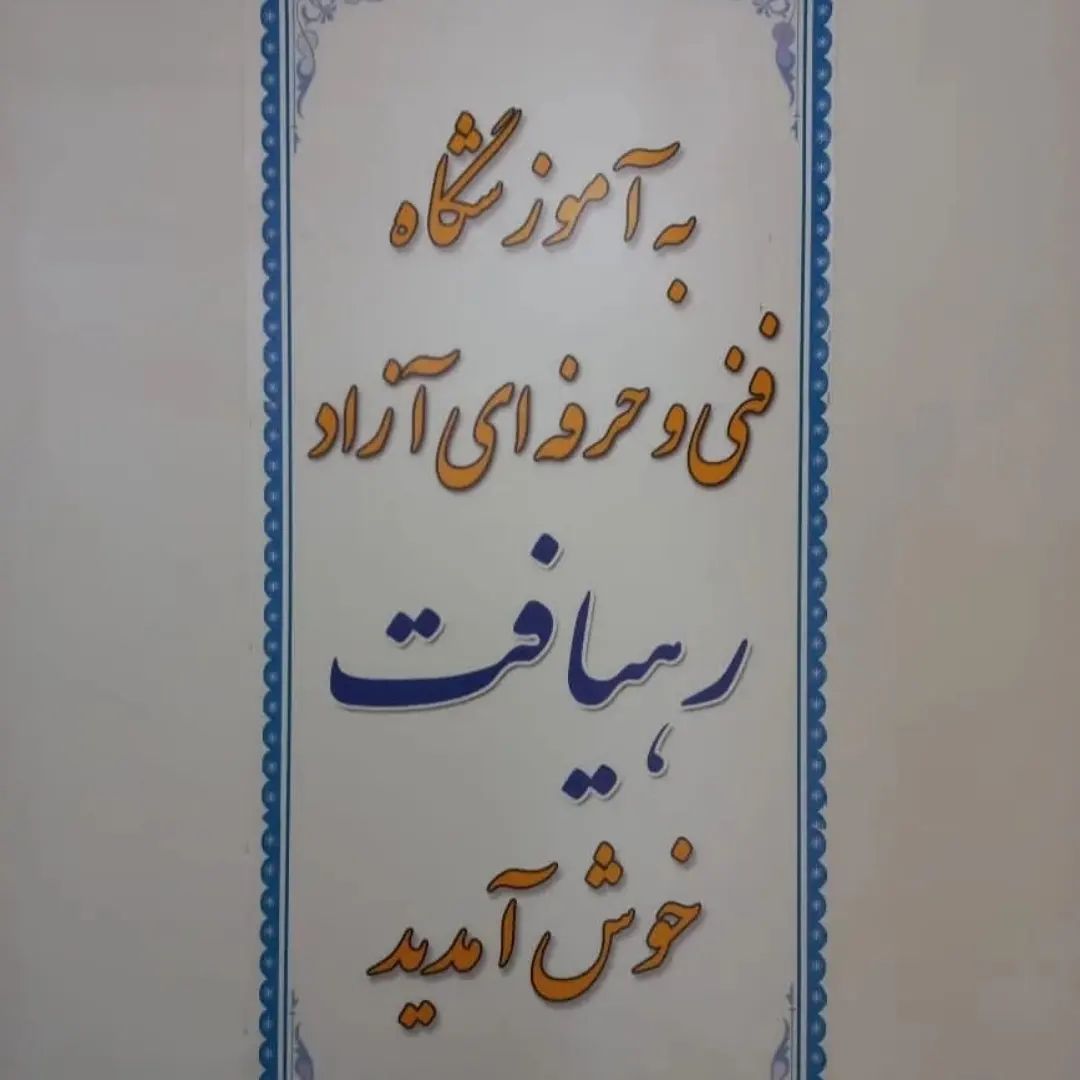 به آموزشگاه
فنی و حرفه ای آزاد
رهیافت
خوش آمدید